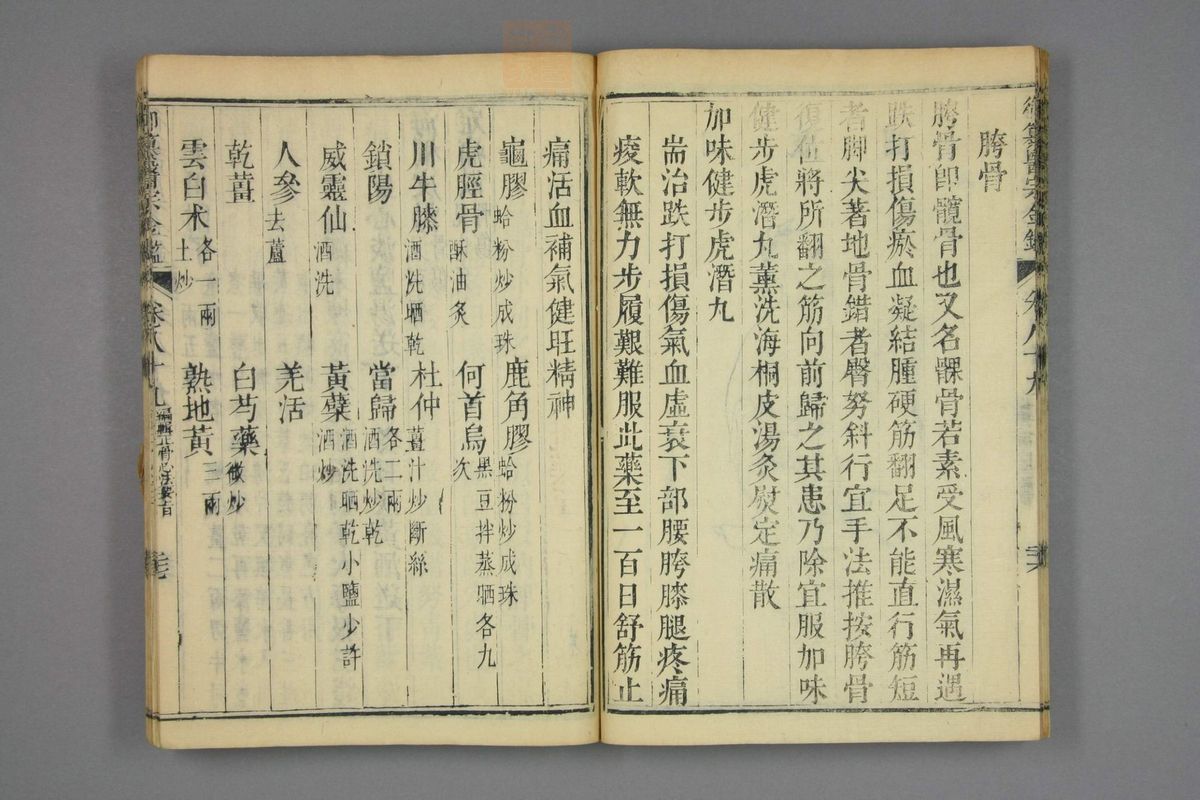 胯骨
胯骨卽髖骨也又名髁骨若素受風寒濕氣再遇
跌打損傷瘀血凝結腫硬筋翻足不能直行筋短
者脚尖著地骨錯者臀努斜行宜手法推按胯骨
復位將所翻之筋向前歸之其患乃除宜服加味
健步虎潛丸薰洗海桐皮湯灸熨定痛散
加味健步虎潛丸
耑治跌打損傷氣血虛衰下部腰胯膝腿疼痛
痠軟無力步履艱難服此藥至一百日舒筋止
痛活血補氣健旺精神
龜膠蛤粉炒成珠 鹿角膠蛤粉炒成珠
虎脛骨酥油炙 何首烏黑豆拌蒸晒各九次
川牛膝酒洗晒乾 杜仲薑汁炒斷絲
鎖陽 當歸各二兩酒洗炒乾
威靈仙酒洗 黃蘗酒洗晒乾小鹽少許酒炒
人參去蘆 羌活
乾薑 白芍藥微炒
雲白朮各一兩土炒 熟地黃三兩
卷八十九